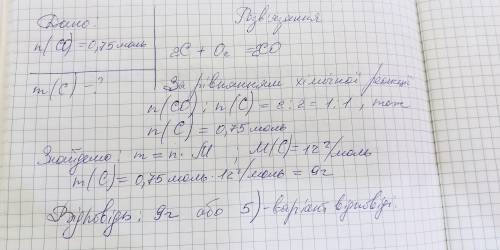 Дано:
n(CO)=0,75 моль
m(C) -?
Розв'язання
2C + O₂ = 2CO
За рівнянням хімічної реакції
n(CO) : n(C) = 2:2 = 1:1, тому
n(C) = 0,75 моль
Знайдемо: m = n · M ; M(C)=12 г/моль
m(C)=0,75 моль · 12 г/моль = 9г
Відповідь: 9г або 5)-варіант відповіді.